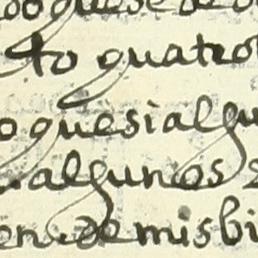 que se de
to quatro
o que si algu
algunos
en de mis bi